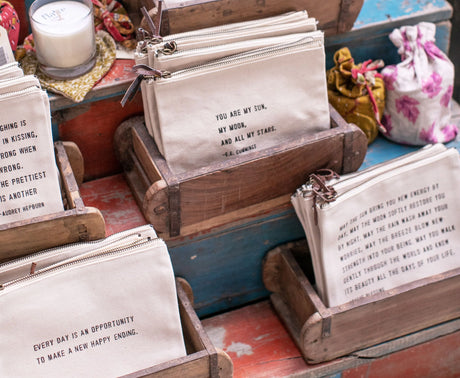 GHING IS
IN KISSING,
RONG WHEN
WRONG.
THE PRETTIEST
IS ANOTHER
-AUDREY HEPBURN
YOU ARE MY SUN,
MY MOON,
AND ALL MY STARS.
-E.E. CUMMINGS
MAY THE SUN BRING YOU NEW ENERGY BY
DAY, MAY THE MOON SOFTLY RESTORE YOU
BY NIGHT, MAY THE RAIN WASH AWAY YOUR
WORRIES, MAY THE BREEZE BLOW NEW
STRENGTH INTO YOUR BEING. MAY YOU WALK
GENTLY THROUGH THE WORLD AND KNOW
ITS BEAUTY ALL THE DAYS OF YOUR LIFE.
EVERY DAY IS AN OPPORTUNITY
TO MAKE A NEW HAPPY ENDING.